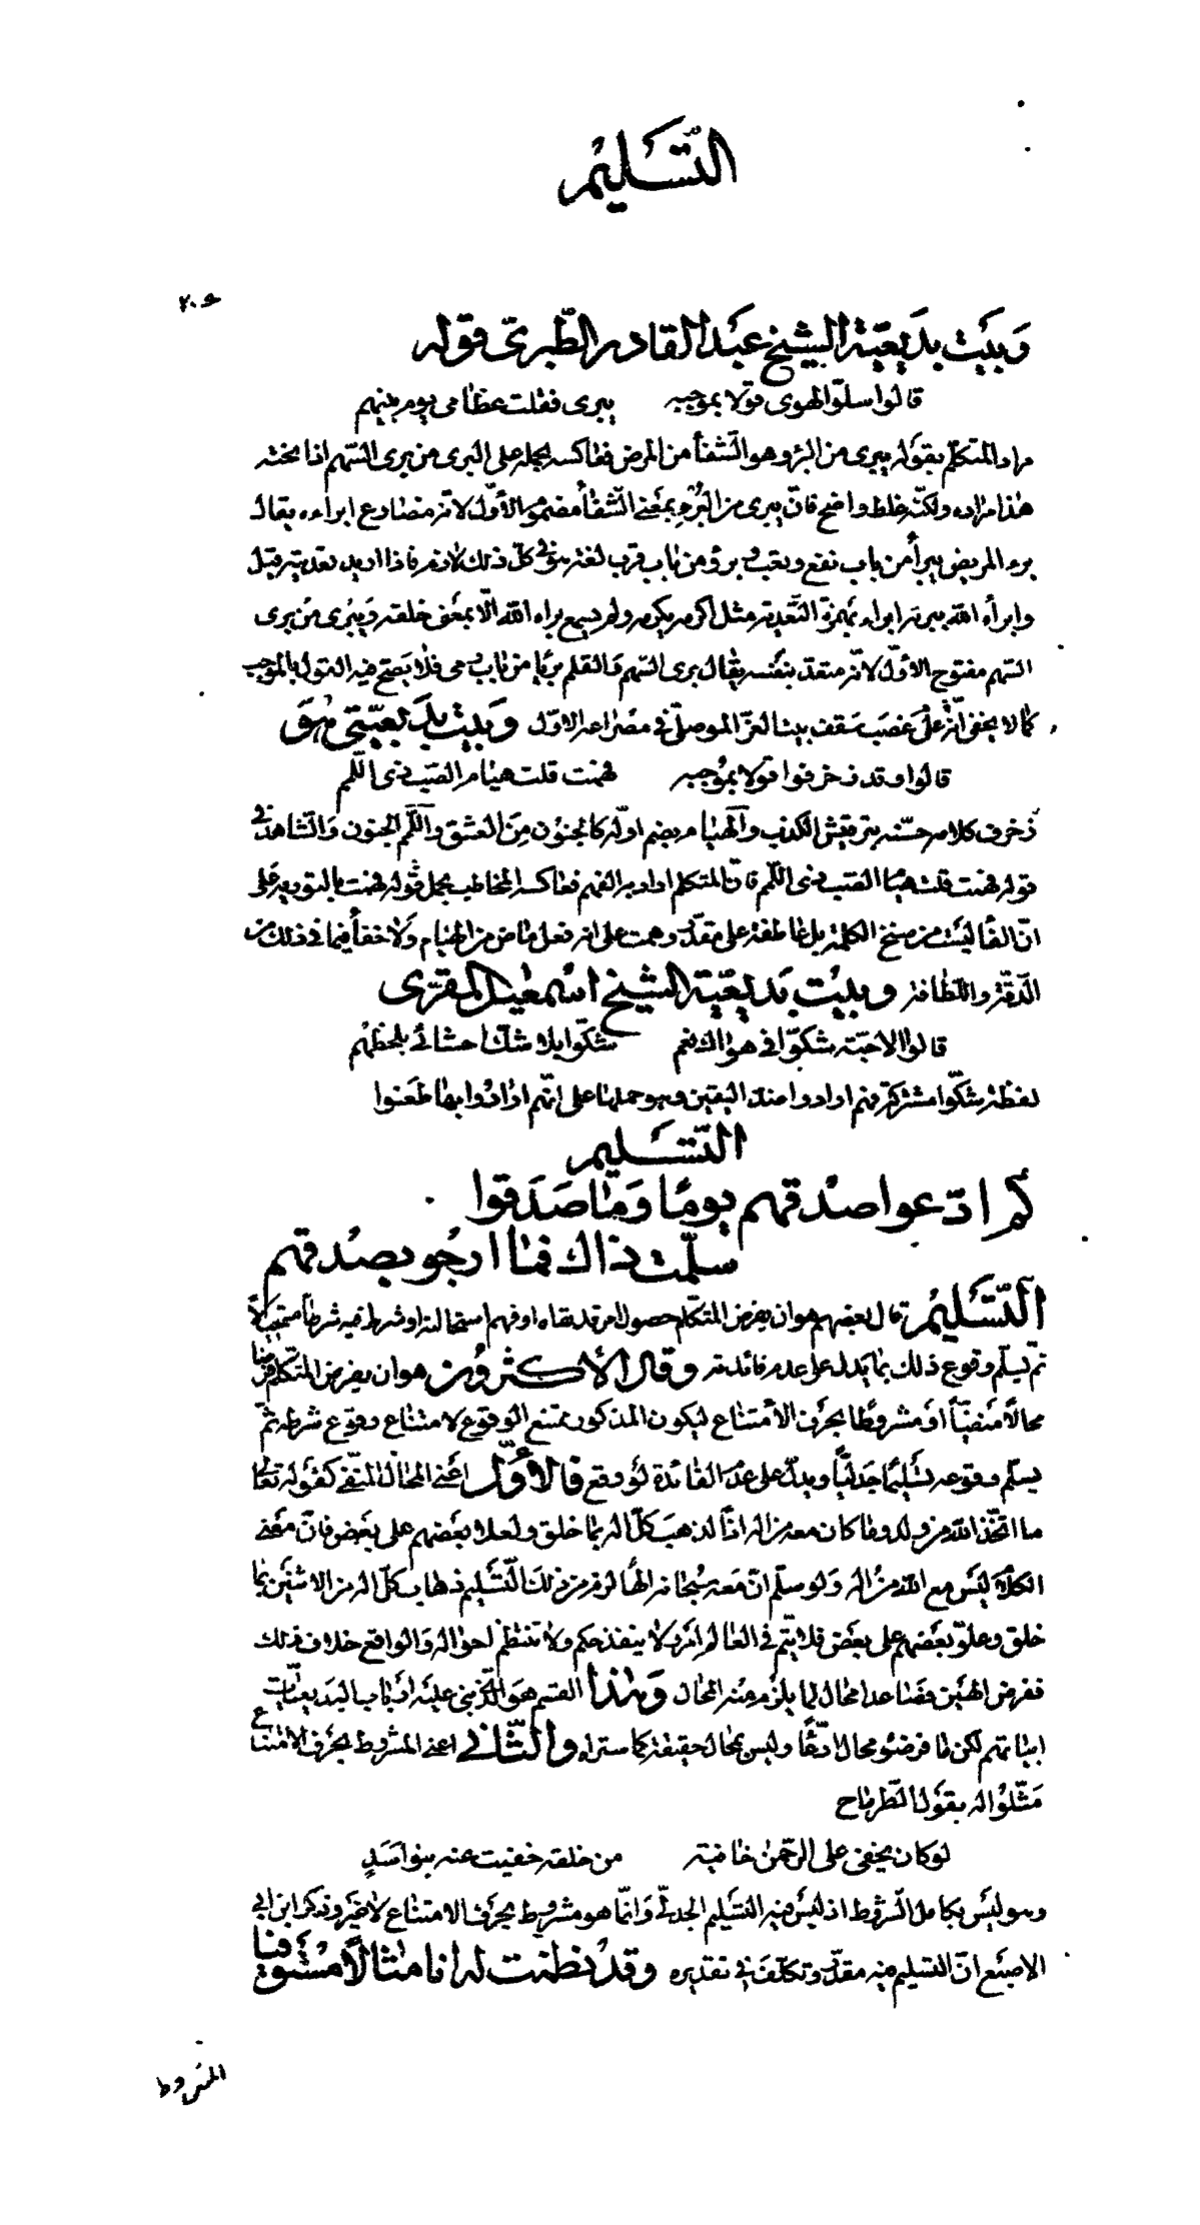 التسليم
٢٠٥
وَبَيت بديعيّة الشيخ عبد القادر الطّبريّ قوله
قالوا سلوّ الهوى قولا بموجبه يبرى فقلت عظامى يوم بينهم
مراد المتكلّم بقوله يبرى من البرؤ وهو الشّفأ من المرض فعاكسه بحمله على البرى من برى السّهم اذا نحته
هذا مراده ولكنّه غلط واضح فانّ يبرى من البُرْءِ بمعنى الشّفأ مضموم الأوّل لانّه مضارع ابراءه يقال
برء المريض يبرأ من باب نفع وتعب وبرؤ من باب قرب لغة وهو فى كلّ ذلك لازم فاذا اريد تعديته قيل
وابرأه الله يبريه ابراء بهمزة التّعدية مثل اكرمه يكرمه ولم يسمع براه اللّه الّا بمعنى خلقه ويَبْرى من برى
السّهم مفتوح الاوّل لانّه متعدّ بنفسه يقال برى السّهم والقلم بريًا من باب رمى فلا يصحّ فيه القول بالموجب
كما لا يخفى انّه على غصب سقف بيت العزّ الموصلّى فى مصراعه الاوّل وبيت بديعيّتى هو
قالوا وقد زخرفوا قولا بموجبه فهمت قلت هيام الصّبّ ذى اللّمم
زخرف كلامه حسّنه بترقيش الكذب والهيام بضم اوّله كالجنون من العشق واللّمم الجنون والشّاهد فى
قوله فهمت قلت هيام الصّب ذى اللّمم فانّ المتكلم اراد به الفهم فعاكسه المخاطب بحمل قوله فهمت بالتوريه على
انّ الفا ليست من سنخ الكلمة بل عاطفة على مقدّر وهمت على انه فعل ماض من الهيام ولا خفأ فيما فى ذلك من
الدّقة واللّطافة وبيت بديعيّة الشيخ اسمعيل المقرى
قالوا الاحبّة شكّوا فى هواك نعم شكّوا بلا شكّ احشائى بلحظهم
لفظة شكّوا مشتركة فهم ارادوا ضدّ اليقين وهو حملها على انّهم ارادوا بها طعنوا
التّسليم
كم ادّعوا صدقهم يومًا وَمَا صَدَقوا
سلّمت ذاك فما ارجو بصدقهم
التّسليم قال بعضهم هو ان يفرض المتكلّم حصول امر قد نفاه او فهم استحالته او شرط فيه شرطًا مستحيلًا
ثم يسلّم وقوع ذلك بما يدلّ على عدم فائدته وقال الأكثرون هو ان يفرض المتكلّم فرضًا
محالًا منفيًّا او مشروطا بحرف الأمتناع ليكون المذكور ممتنع الوقوع لامتناع وقوع شرطه ثمّ
يسلّم وقوعه تسليمًا جدليًّا ويدلّ على عدم الفائدة لو وقع فالأوّل اعنى المحال المنفى كقوله تعالى
ما اتّخذ اللّه من ولد وما كان معه من اله اذًا لذهب كلّ اله بما خلق ولعلا بعضهم على بعض فانّ معنى
الكلام ليس مع اللّه من اله ولو سلّم انّ معه سبحانه الهًا لزم من ذلك التّسليم ذهاب كلّ اله من الاثنين بما
خلق وعلوّ بعضهم على بعض فلا يتمّ فى العالم امر ولا ينفذ حكم ولا تنتظم احواله والواقع خلاف ذلك
ففرض الهين فصاعدا محال لما يلزم منه المحال وهذا القسم هو الّذى بنى عليه ارباب البديعيّات
ابياتهم لكن ما فرضوه محال ادّعًا وليس بمحال حقيقة كما ستراه والثّانى اعنى المشروط بحرف الامتناع
مثّلوا له بقول الطّرماح
لو كان يخفى على الرّحمن خافية من خلقه خفيت عنه بنو اسد
وهو ليس بكامل الشّروط اذ ليس فيه التّسليم الجدلّى وانّما هو مشروط بحرف الامتناع لا غير وذكر ابن ابى
الاصبع انّ التسليم فيه مقدّر وتكلّف فى تقديره وقد نظمت له انا مثالًا مستوفيا
المشروط